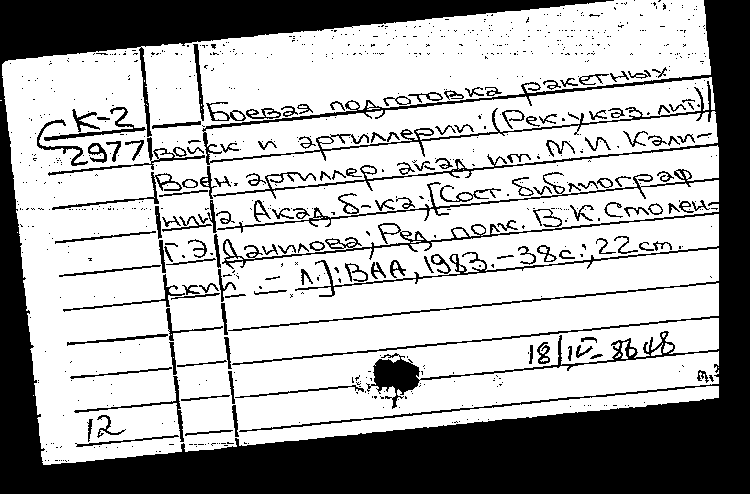 Боевая подготовка ракетных
СК-2
2977
войск и артиллерии: (Рек. указ. лит.) |
Воен. артиллер. акад. им. М.И. Кали-
нина, Акад. б-ка; [Сост. библиограф
Г.Э. Данилова; Ред. полк. В.К. Столен-
ский. - Л.]: ВАА, 1983. - 38с.; 22 см.
18/IV-86
12